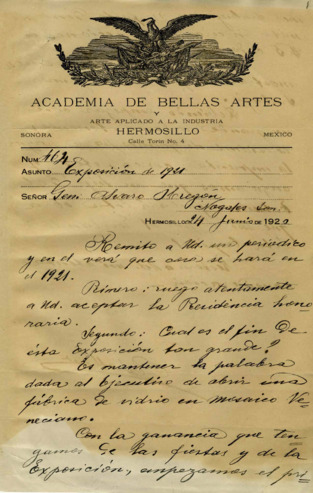 1
ACADEMIA DE BELLAS ARTES
Y
ARTE APLICADO A LA INDUSTRIA
SONORA HERMOSILLO MEXICO
Calle Torin No. 4
NUM: 464
ASUNTO: Exposición de 1921
SEÑOR Genl Alvaro Obregón
Nogales Son.
HERMOSILLO 24 Junio DE 1920
Remito a Ud. un periodico
y en el verá que cosa se hará en
el 1921.
Primero: ruego atentamente
a Ud. aceptar la Presidencia hono
raria.
Segundo: Cual es el fin de
ésta Exposición tan grande?
Es mantener la palabra
dada al Ejecutivo de abrir una
fábrica de vidrio en mosaico Ve
neciano.
Con la ganancia que ten
gamos de las fiestas y de la
Exposición, empezamos el pri